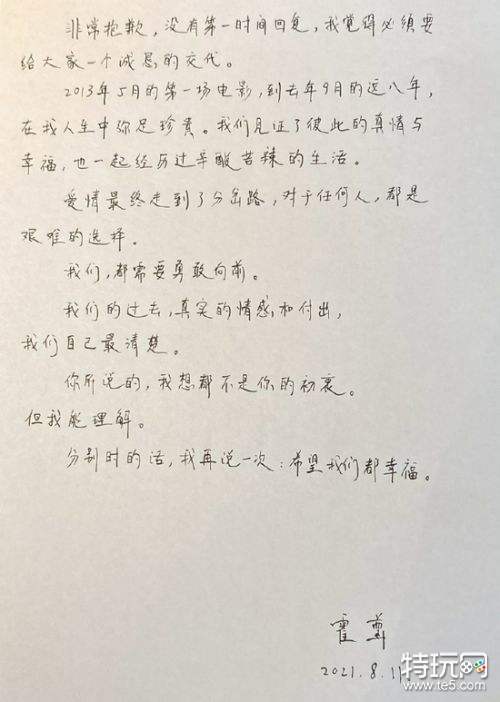 非常抱歉，没有第一时间回复，我觉得必须要
给大家一个诚恳的交代。
2013年5月的第一场电影，到去年9月的近八年，
在我人生中弥足珍贵。我们见证了彼此的真情与
幸福，也一起经历过辛酸苦辣的生活。
爱情最终走到了分岔路，对于任何人，都是
艰难的选择。
我们，都需要勇敢向前。
我们的过去，真实的情感和付出，
我们自己最清楚。
你所说的，我想都不是你的初衷。
但我能理解。
分别时的话，我再说一次：希望我们都幸福。
霍尊
2021.8.11.
特玩网
www.te5.com